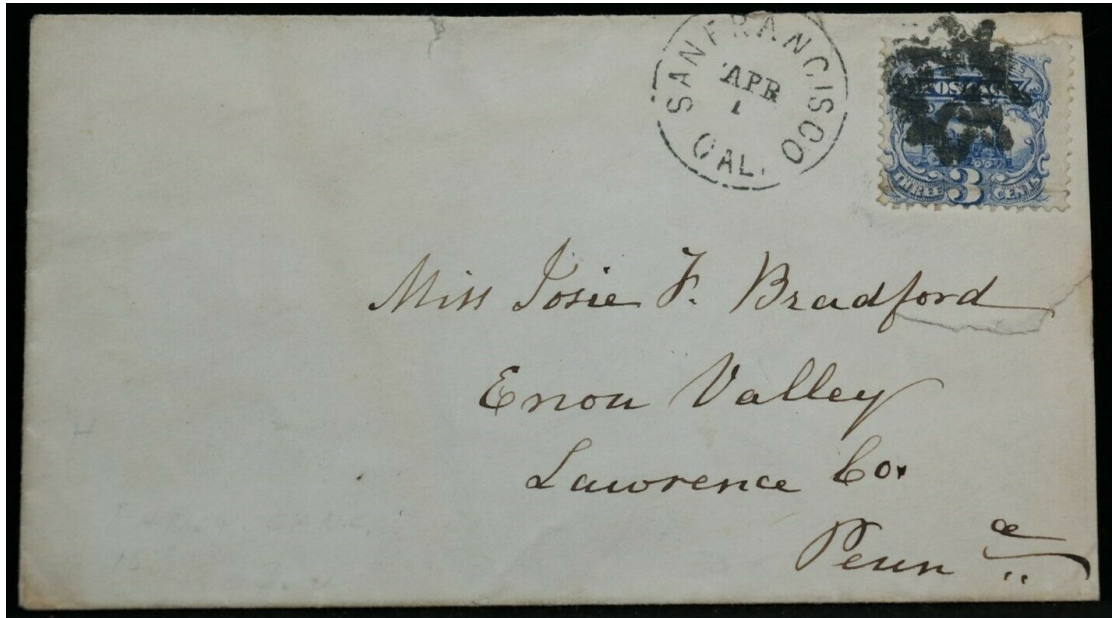 SAN FRANCISCO
APR
1
CAL.
POSTAGE
THREE 3 CENTS
Miss Josie F. Bradford
Enon Valley
Lawrence Co.
Penn a